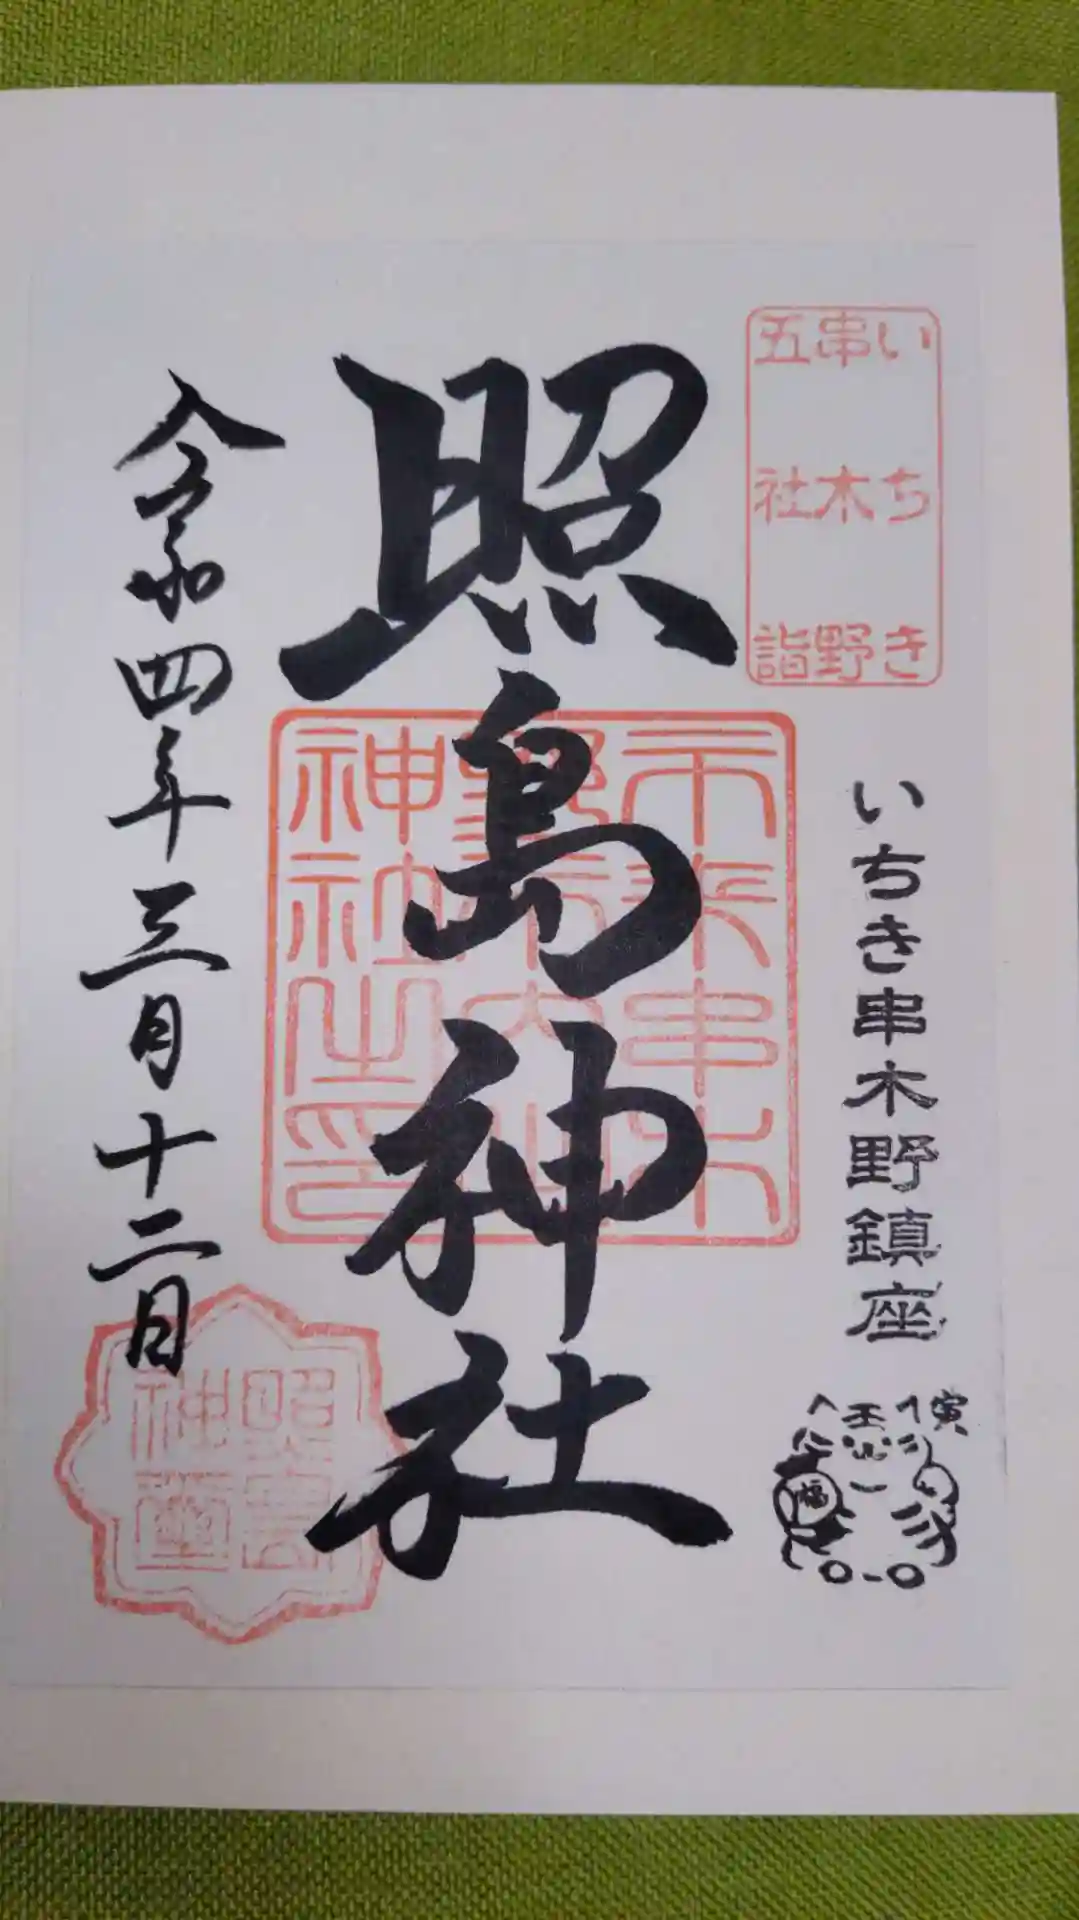 いちき
串木野
五社詣
いちき串木野鎮座
寅
福
照島神社
神社之印
令和四年三月十二日
照島
神璽